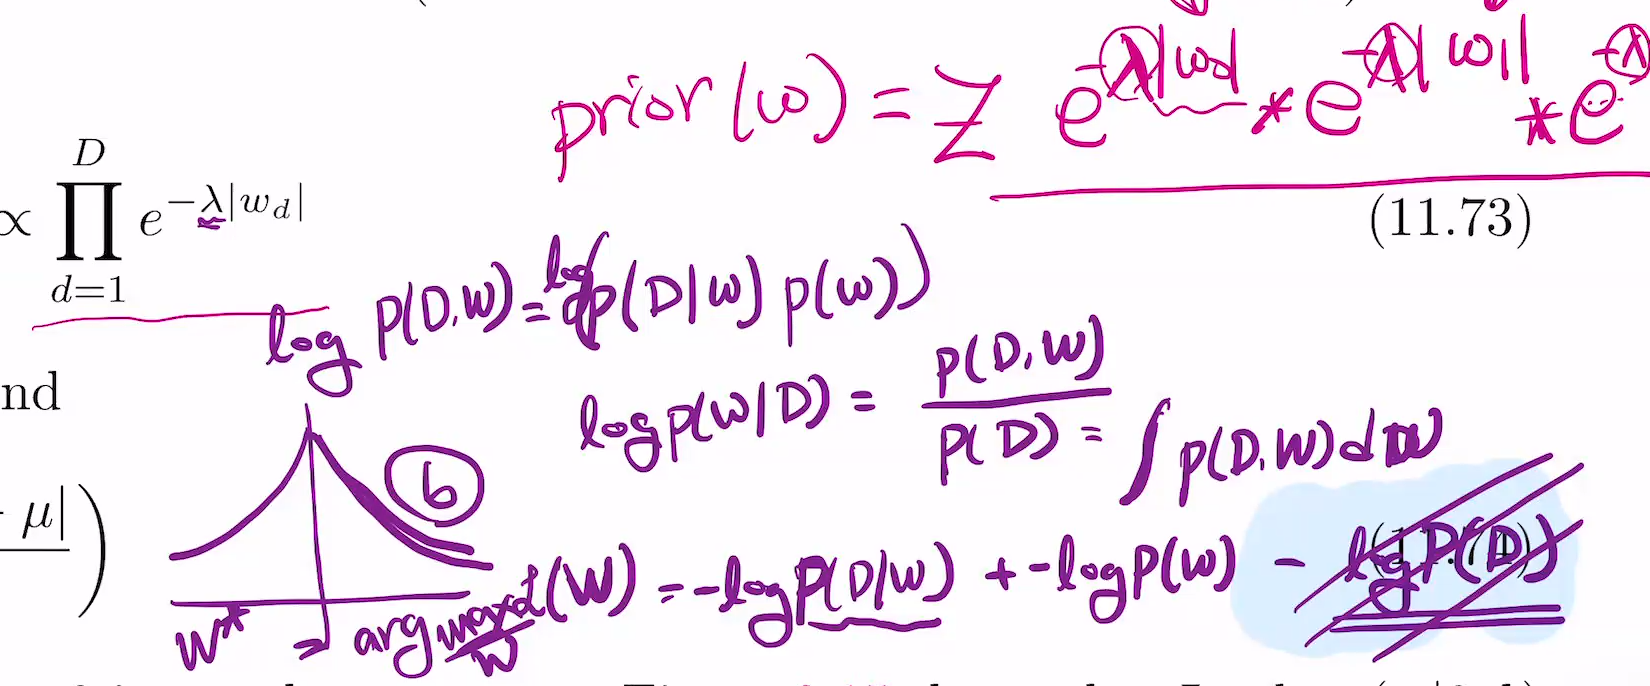 prior(w) = Z e^{-λ|wd|} * e^{-λ|w1|} * e^{-λ
∝ \prod_{d=1}^{D} e^{-λ|w_d|}
(11.73)
log P(D,W) = log(p(D|w) p(w))
nd
log p(W|D) = \frac{P(D,W)}{P(D)} = ∫ p(D,W) d W
6
- μ|)
W* = arg (W) = -log P(D|W) + -log P(W) - log P(D)
w